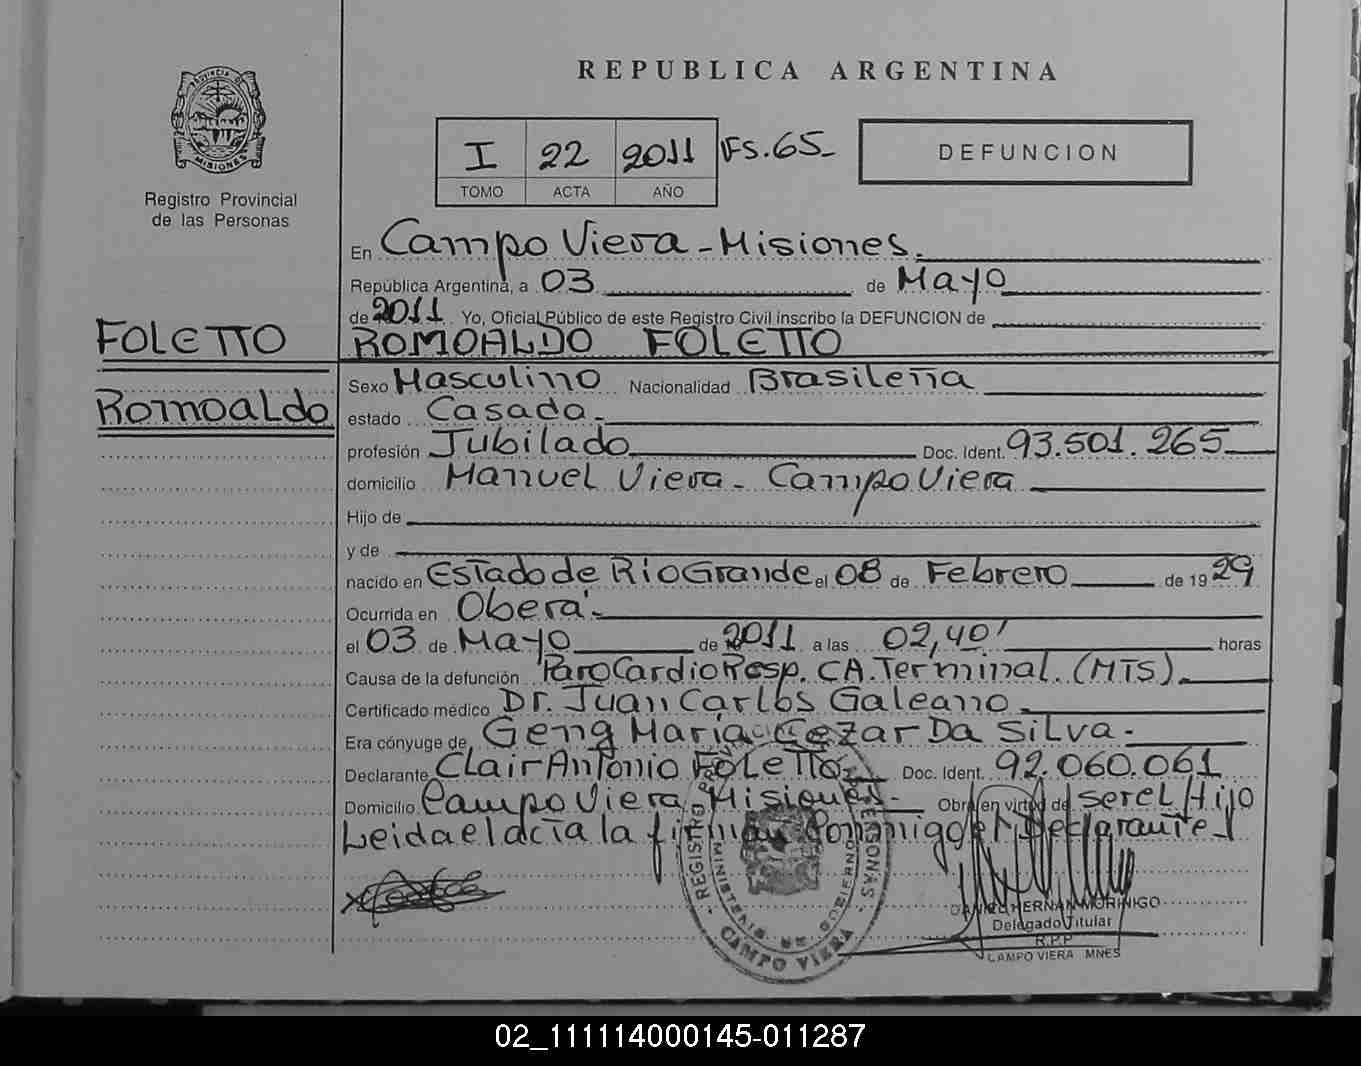 REPUBLICA ARGENTINA
PROVINCIA DE MISIONES
Registro Provincial
de las Personas
I 22 2011 FS.65-
TOMO ACTA AÑO
DEFUNCION
En Campo Viera - Misiones.
República Argentina, a 03 de Mayo
de 2011 Yo, Oficial Público de este Registro Civil inscribo la DEFUNCION de
FOLETTO
Romoaldo
ROMOALDO FOLETTO
Sexo Masculino Nacionalidad Brasileña
estado Casada-
profesión Jubilado Doc. Ident. 93.501.265
domicilio Manuel Viera - Campo Viera
Hijo de
y de
nacido en Estado de Rio Grande el 08 de Febrero de 19 29
Ocurrida en Oberá-
el 03 de Mayo de 2011 a las 02,40' horas
Causa de la defunción Paro Cardio Resp. CA. Terminal. (MTS).
Certificado médico Dr. Juan Carlos Galeano
Era cónyuge de Geng María Cezar Da Silva.
Declarante Clair Antonio Foletto Doc. Ident. 92.060.061
Domicilio Campo Viera - Misiones - Obra en virtud de ser el Hijo
Leida el acta la firman Conmigo el Declarante
REGISTRO PROVINCIAL DE LAS PERSONAS
MINISTERIO DE GOBIERNO
CAMPO VIERA
DANIEL HERNAN MORINIGO
Delegado Titular
R.P.P
CAMPO VIERA MNES
02_111114000145-011287